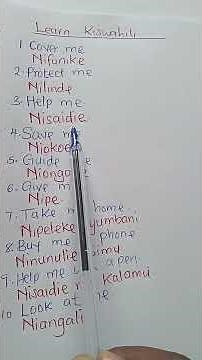 Learn Kiswahili
1. Cover me
Nifunike
2. Protect me
Nilinde
3. Help me
Nisaidie
4. Save
Niokoe
5. Guide
Niongo
6. Give
Nipe
7. Take home
Nipeleke nyumbani
8. Buy me phone
Ninunulie simu
9. Help me a pen
Nisaidie Kalamu
10. Look at me
Niangali